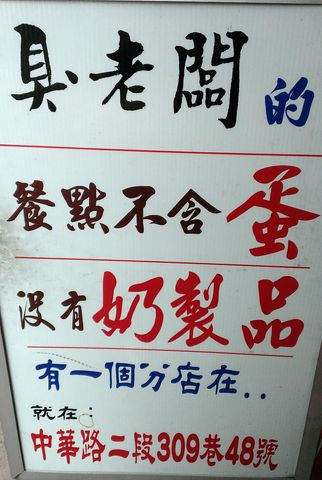 臭老闆的
餐點不含蛋
沒有奶製品
有一個分店在..
就在：
中華路二段309巷48號